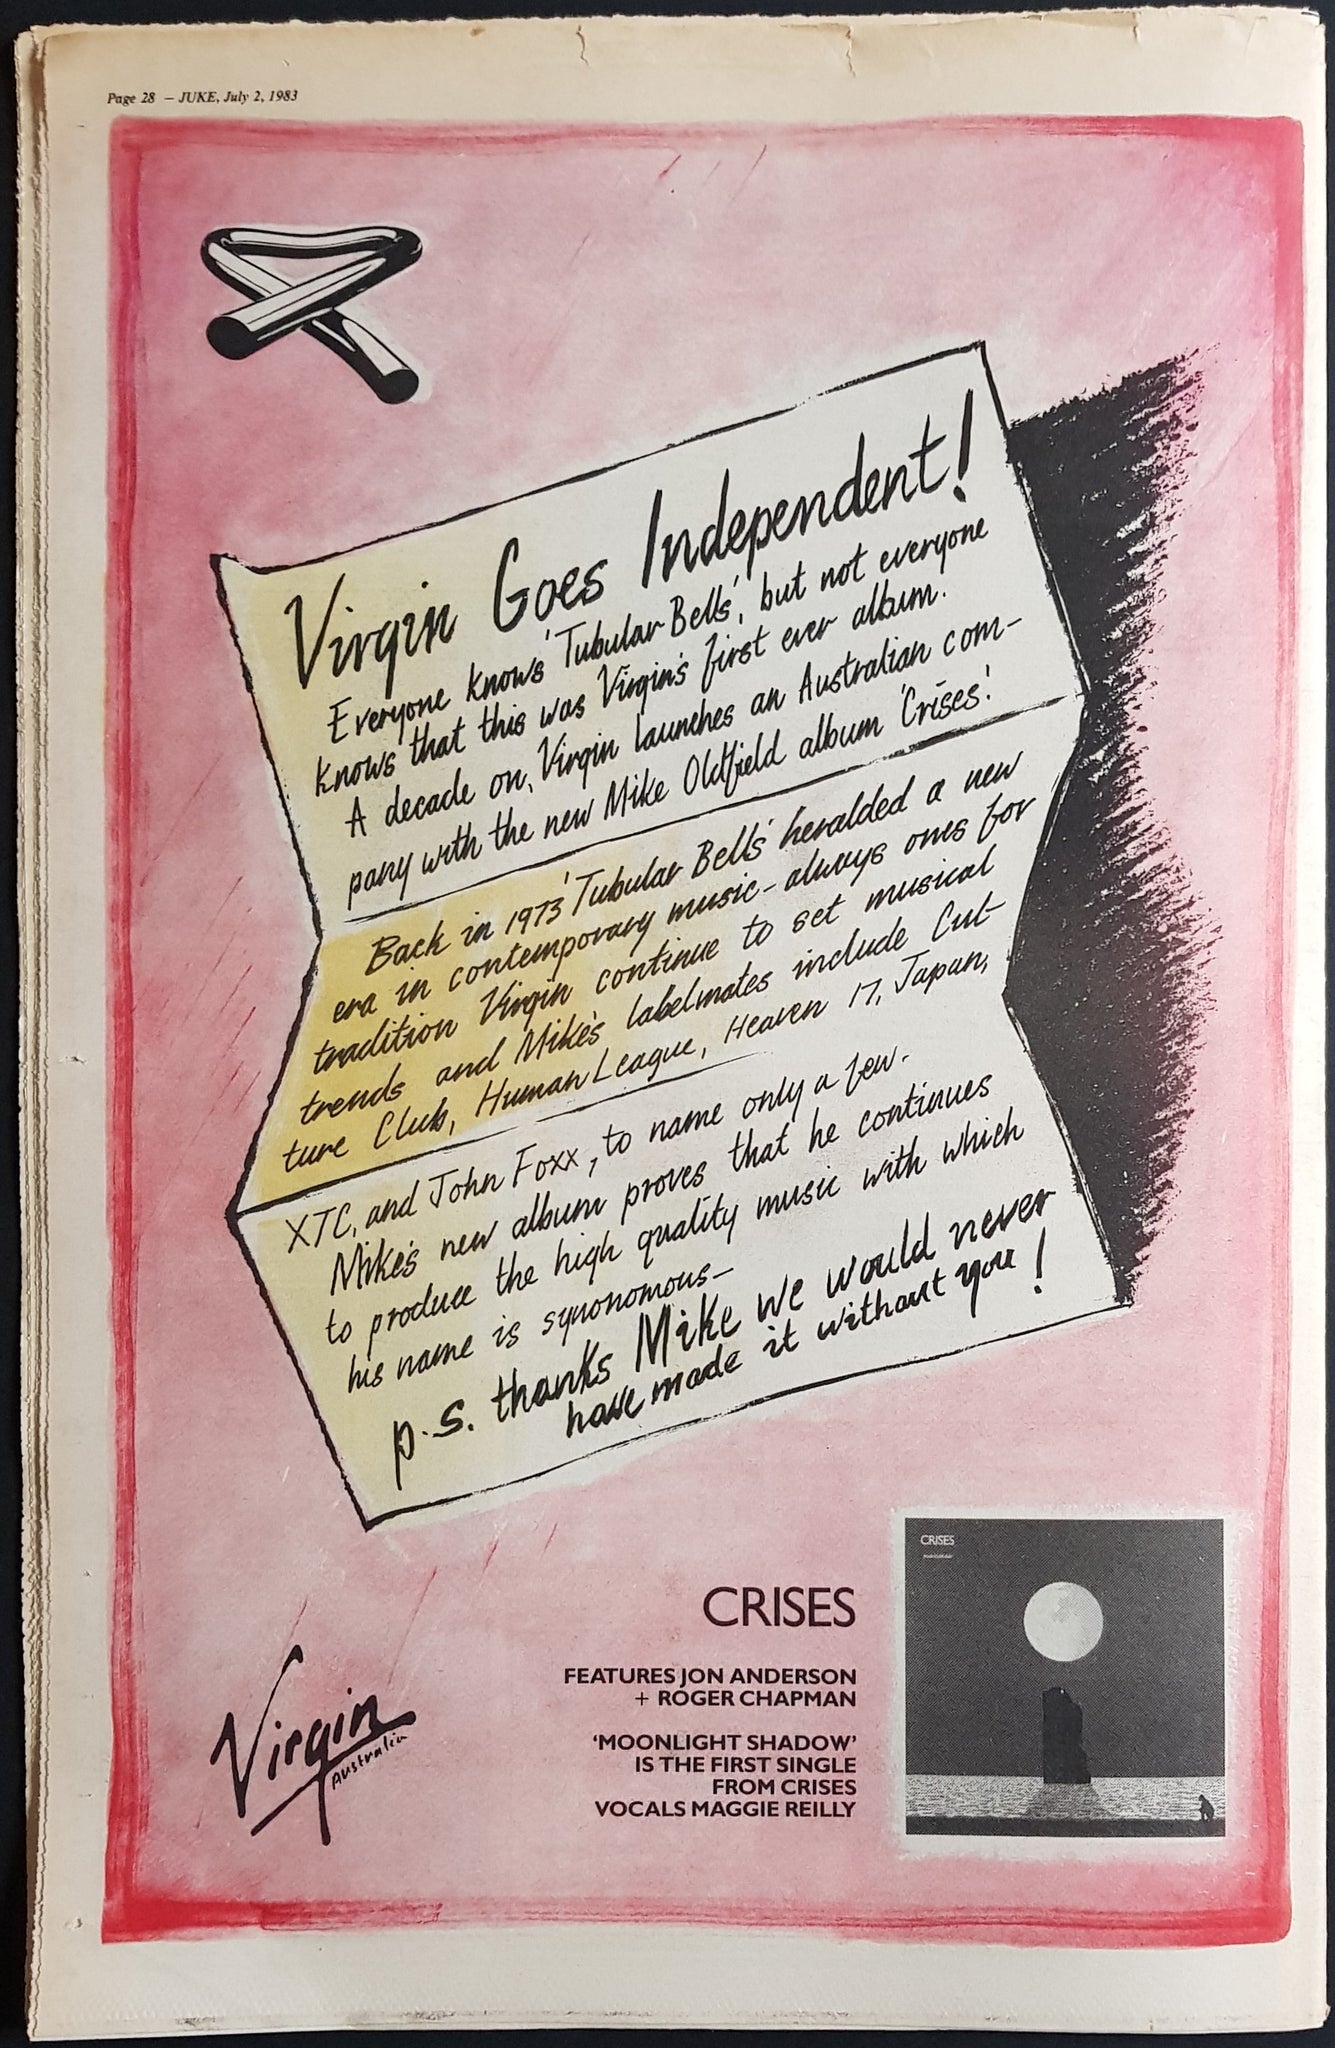 Page 28 – JUKE, July 2, 1983
Virgin Goes Independent!
Everyone knows 'Tubular Bells', but not everyone
knows that this was Virgin's first ever album.
A decade on, Virgin launches an Australian com-
pany with the new Mike Oldfield album 'Crises'.
Back in 1973 'Tubular Bells' heralded a new
era in contemporary music - always ones for
tradition Virgin continue to set musical
trends and Mike's labelmates include Cul-
ture Club, Human League, Heaven 17, Japan,
XTC, and John Foxx, to name only a few.
Mike's new album proves that he continues
to produce the high quality music with which
his name is synonomous-
p.s. thanks Mike we would never
have made it without you!
CRISES
CRISES
FEATURES JON ANDERSON
+ ROGER CHAPMAN
'MOONLIGHT SHADOW'
IS THE FIRST SINGLE
FROM CRISES
VOCALS MAGGIE REILLY
Virgin
Australia